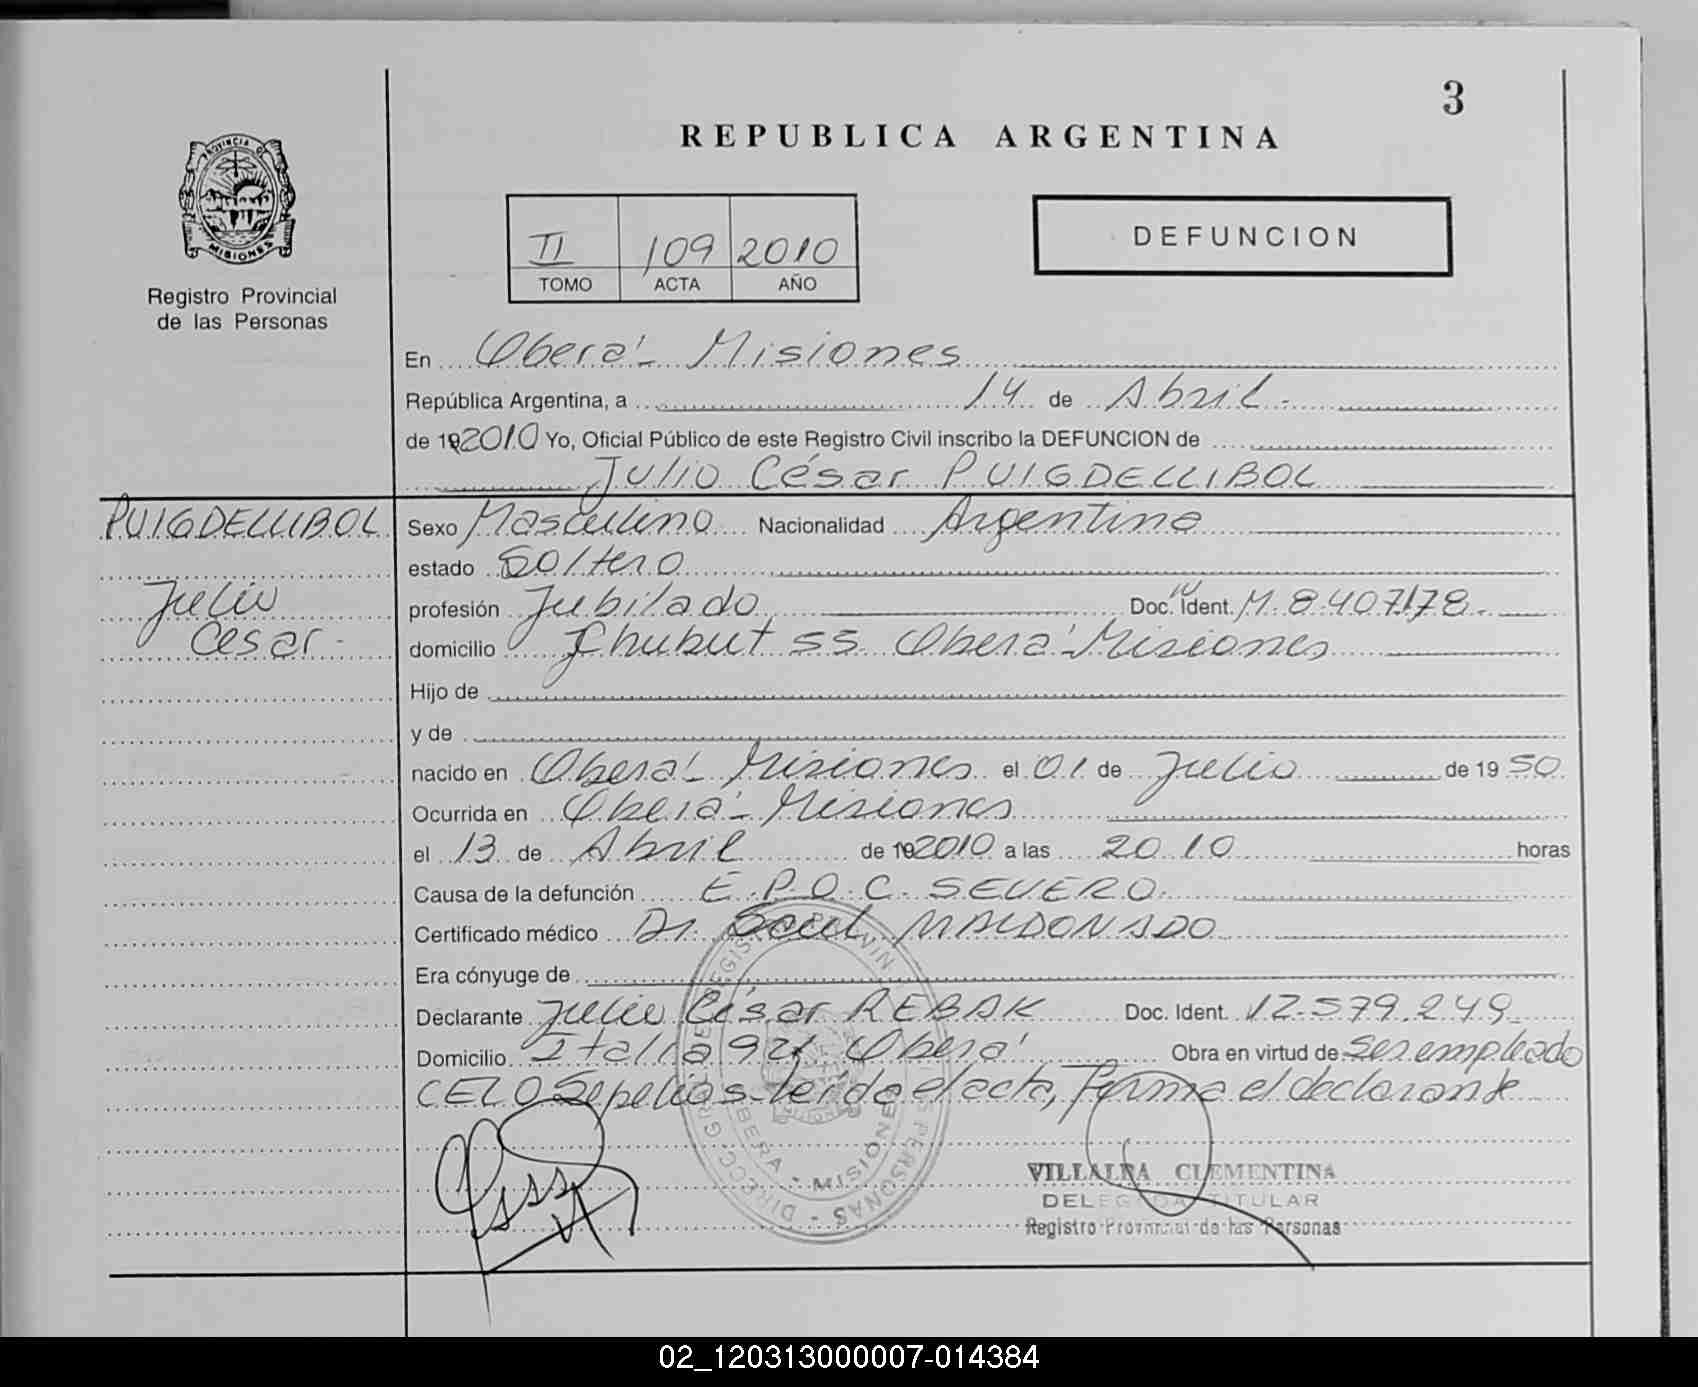 3
REPUBLICA ARGENTINA
PROVINCIA DE
MISIONES
Registro Provincial
de las Personas
II 109 2010
TOMO ACTA AÑO
DEFUNCION
En Oberá - Misiones
República Argentina, a 14 de Abril -
de 19 2010 Yo, Oficial Público de este Registro Civil inscribo la DEFUNCION de
Julio César PUIGDELLIBOL
PUIGDELLIBOL
Julio
César -
Sexo Masculino Nacionalidad Argentina
estado Soltero
profesión Jubilado Doc. Ident. M. 8.407.178.
domicilio Chubut 55 Oberá - Misiones
Hijo de
y de
nacido en Oberá - Misiones el 01 de Julio de 19 50
Ocurrida en Oberá - Misiones
el 13 de Abril de 19 2010 a las 20.10 horas
Causa de la defunción E.P.O.C. SEVERO.
Certificado médico Dr. Saul MALDONADO
Era cónyuge de
Declarante Julio César REBAK Doc. Ident. 12.579.249
Domicilio Italia 921 Oberá Obra en virtud de Ser empleado
CELO Sepelios - Leída el acta, Firma el declarante
VILLALBA CLEMENTINA
DELEGADA TITULAR
Registro Provincial de las Personas
OBERA - MISIONES
02_120313000007-014384